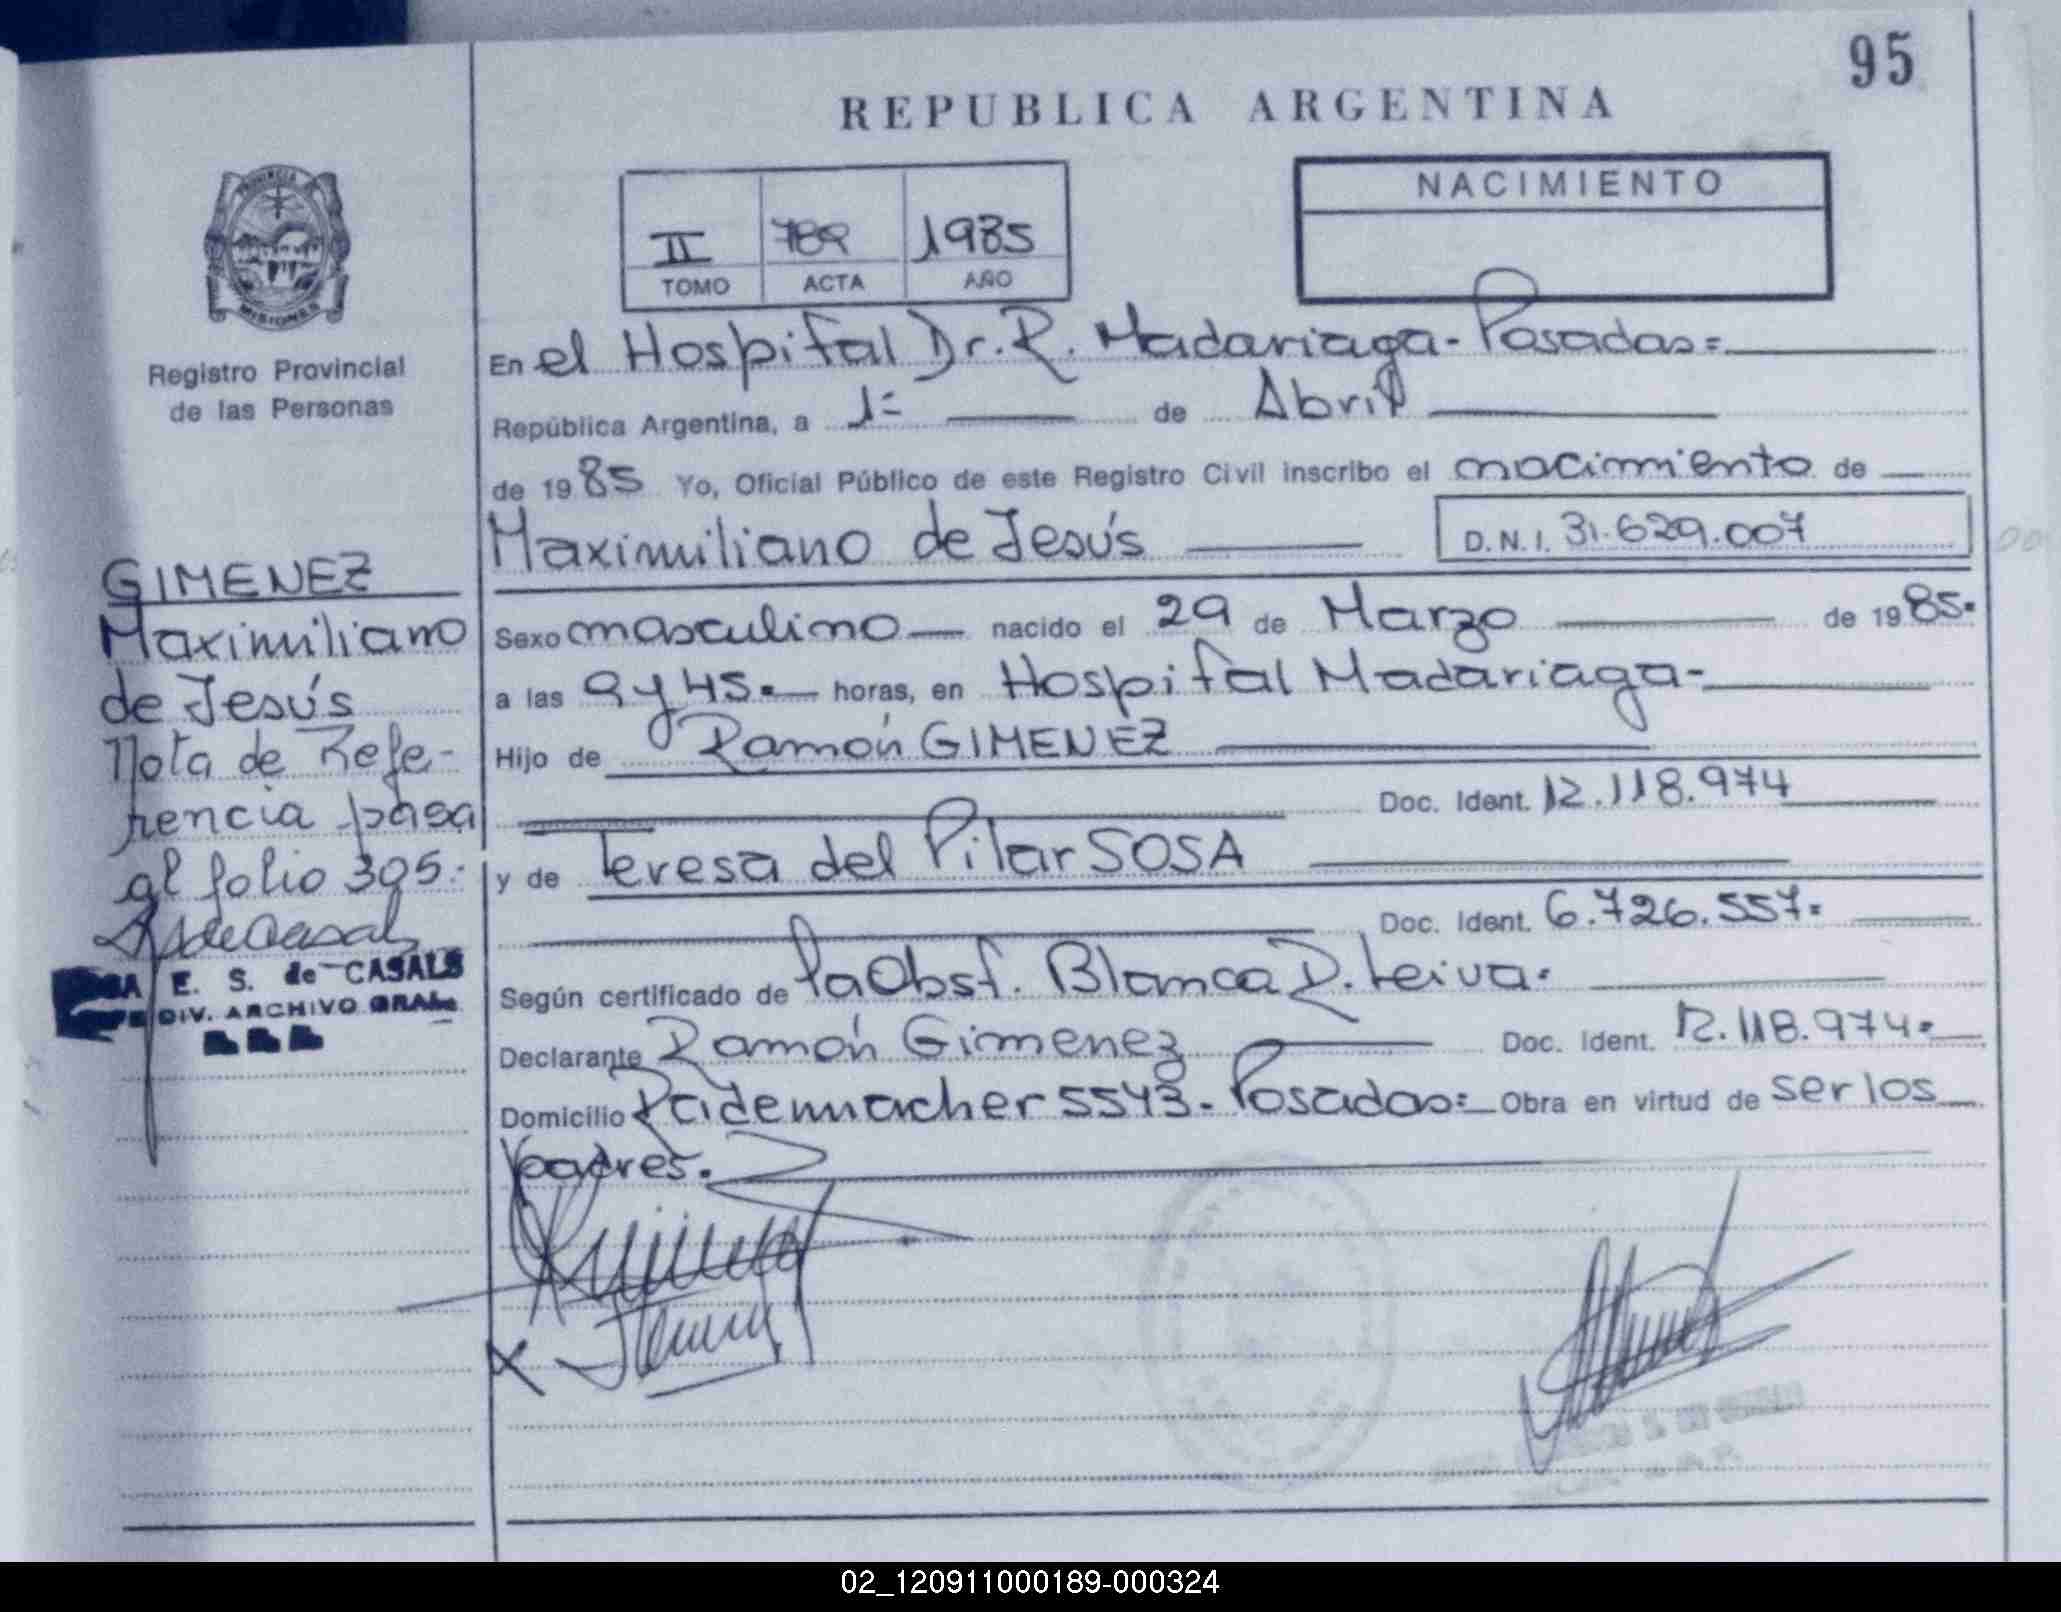 95
REPUBLICA ARGENTINA
PROVINCIA DE
MISIONES
Registro Provincial
de las Personas
II 789 1985
TOMO ACTA AÑO
NACIMIENTO
En el Hospital Dr. R. Madariaga - Posadas =
República Argentina, a 1º de Abril
de 1985 Yo, Oficial Público de este Registro Civil inscribo el nacimiento de
Maximiliano de Jesús D.N.I. 31.629.007
Sexo masculino nacido el 29 de Marzo de 1985.
a las 9 y 45. horas, en Hospital Madariaga -
Hijo de Ramón GIMENEZ
Doc. Ident. 12.118.974
y de Teresa del Pilar SOSA
Doc. Ident. 6.726.557.
Según certificado de la Obst. Blanca R. Leiva.
Declarante Ramón Gimenez Doc. Ident. 12.118.974.
Domicilio Rademacher 5543 - Posadas = Obra en virtud de ser los
padres.
GIMENEZ
Maximiliano
de Jesús
Nota de Refe-
rencia pasa
al folio 395.
E. S. de CASALS
DIV. ARCHIVO GRAL.
02_120911000189-000324